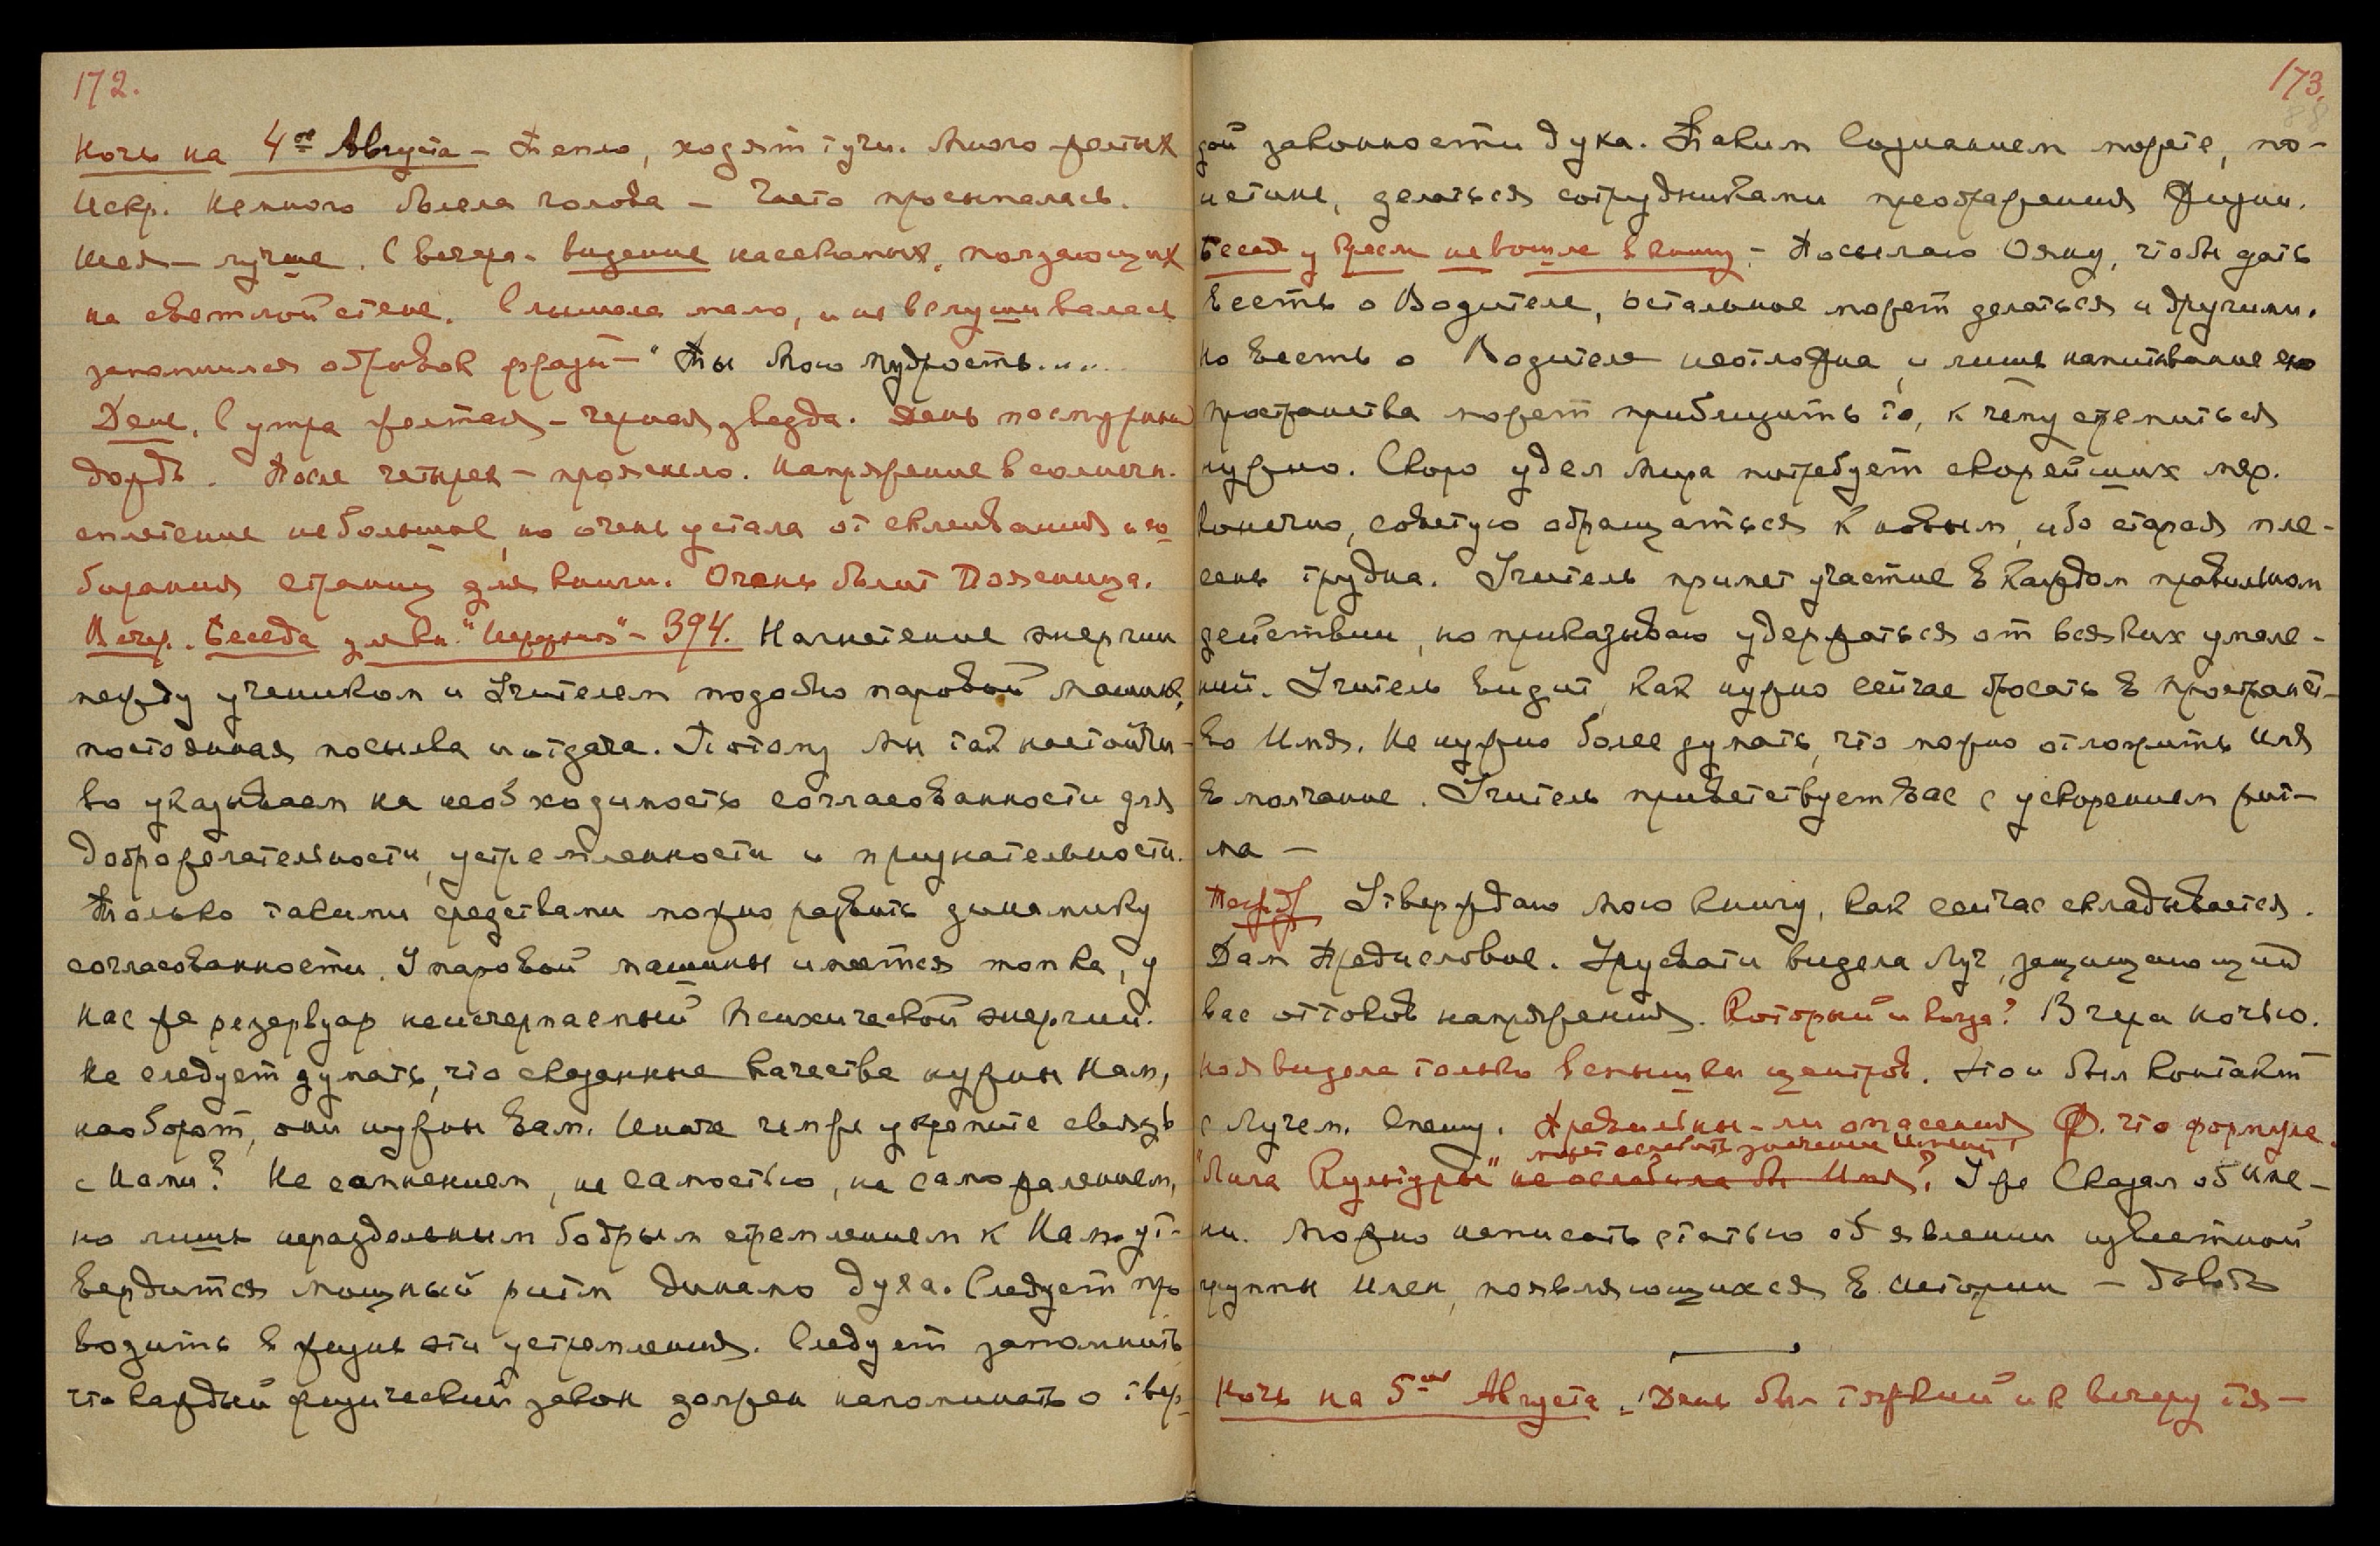 172.
Ночь на 4ое Августа – Тепло, ходят тучи. Много желтых
искр. Немного болела голова – Часто просыпалась.
Шея – лучше. С вечера – видение насекомых, ползающих
на светлой стене. Слышала мало, и не вслушивалась
запомнился обрывок фразы – "Ты Мою Мудрость.....
День. С утра желтая – черная звезда. День пасмурный
дождь. После четырех – прояснело. Напряжение в солнечн.
сплетение небольшое, но очень устала от склеивания и со
бирания страниц для книги. Очень болит Поясница.
Вечер. Беседа для кн. "Иерархия" – 394. Нагнетение энергии
между учеником и Учителем подобно паровой машине,
постоянная посылка и отдача. Потому Мы так настойчи-
во указываем на необходимость согласованности для
доброжелательности, устремленности и признательности.
Только такими средствами можно развить динамику
согласованности. У паровой машины имеется топка, у
нас же резервуар неисчерпаемый психической энергии.
Не следует думать, что сказанные качества нужны Нам,
наоборот, они нужны вам. Иначе чем же укрепите связь
с Нами? Не сомнением, не самостью, не саможалением,
но лишь нераздельным бодрым стремлением к Нам ут-
вердится мощный ритм динамо духа. Следует про
водить в жизнь эти устремления. Следует запомнить
что каждый физический закон должен напоминать о твер-
173.
88
дой законности духа. Таким сознанием можете, по-
истине, делаться сотрудниками преображения Жизни.
Беседа у кресл не вошла в книгу – Посылаю Ояну, чтобы дать
весть о Водителе, остальное может делаться и другими.
Но весть о Водителе неотложна, и лишь напитывание ею
пространства может приблизить то, к чему стремиться
нужно. Скоро удел Мира потребует скорейших мер.
Конечно, советую обращаться к новым, ибо старая пле-
сень трудна. Учитель примет участие в каждом правильном
действии, но приказываю удержаться от всяких умале-
ний. Учитель видит, как нужно сейчас бросать в пространст-
во Имя. Не нужно более думать, что можно отложить Имя
в молчание. Учитель приветствует вас с ускорением рит-
ма –
Утверждаю Мою книгу, как сейчас складывается.
Дам Предисловие. Урусвати видела Луч, защищающий
вас от токов напряжения. Который и когда? Вчера ночью.
Но я видела только вспышки центров. Это и был контакт
с Лучем. Спешу. Правильны-ли опасения Ф. что формула
может ослабить значение Имени,
"Лига Культуры" не ослабила бы Имя? Уже Сказал об Име-
ни. Можно написать статью об явлении известной
группы имен, появляющихся в истории – довол
Ночь на 5ое Августа. День был тяжкий и к вечеру тя-